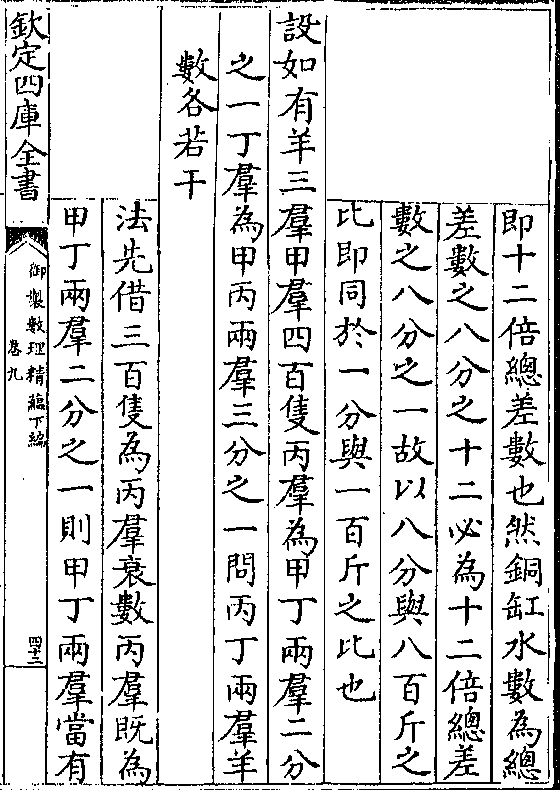 即十二倍總差數也然銅缸水數為總
差數之八分之十二必為十二倍總差
數之八分之一故以八分與八百斤之
比即同於一分與一百斤之比也
設如有羊三羣甲羣四百隻丙羣為甲丁兩羣二分
之一丁羣為甲丙兩羣三分之一問丙丁兩羣羊
數各若干
法先借三百隻為丙羣衰數丙羣既為
甲丁兩羣二分之一則甲丁兩羣當有
欽定四庫全書
御製數理精蘊下編
卷九
四十三